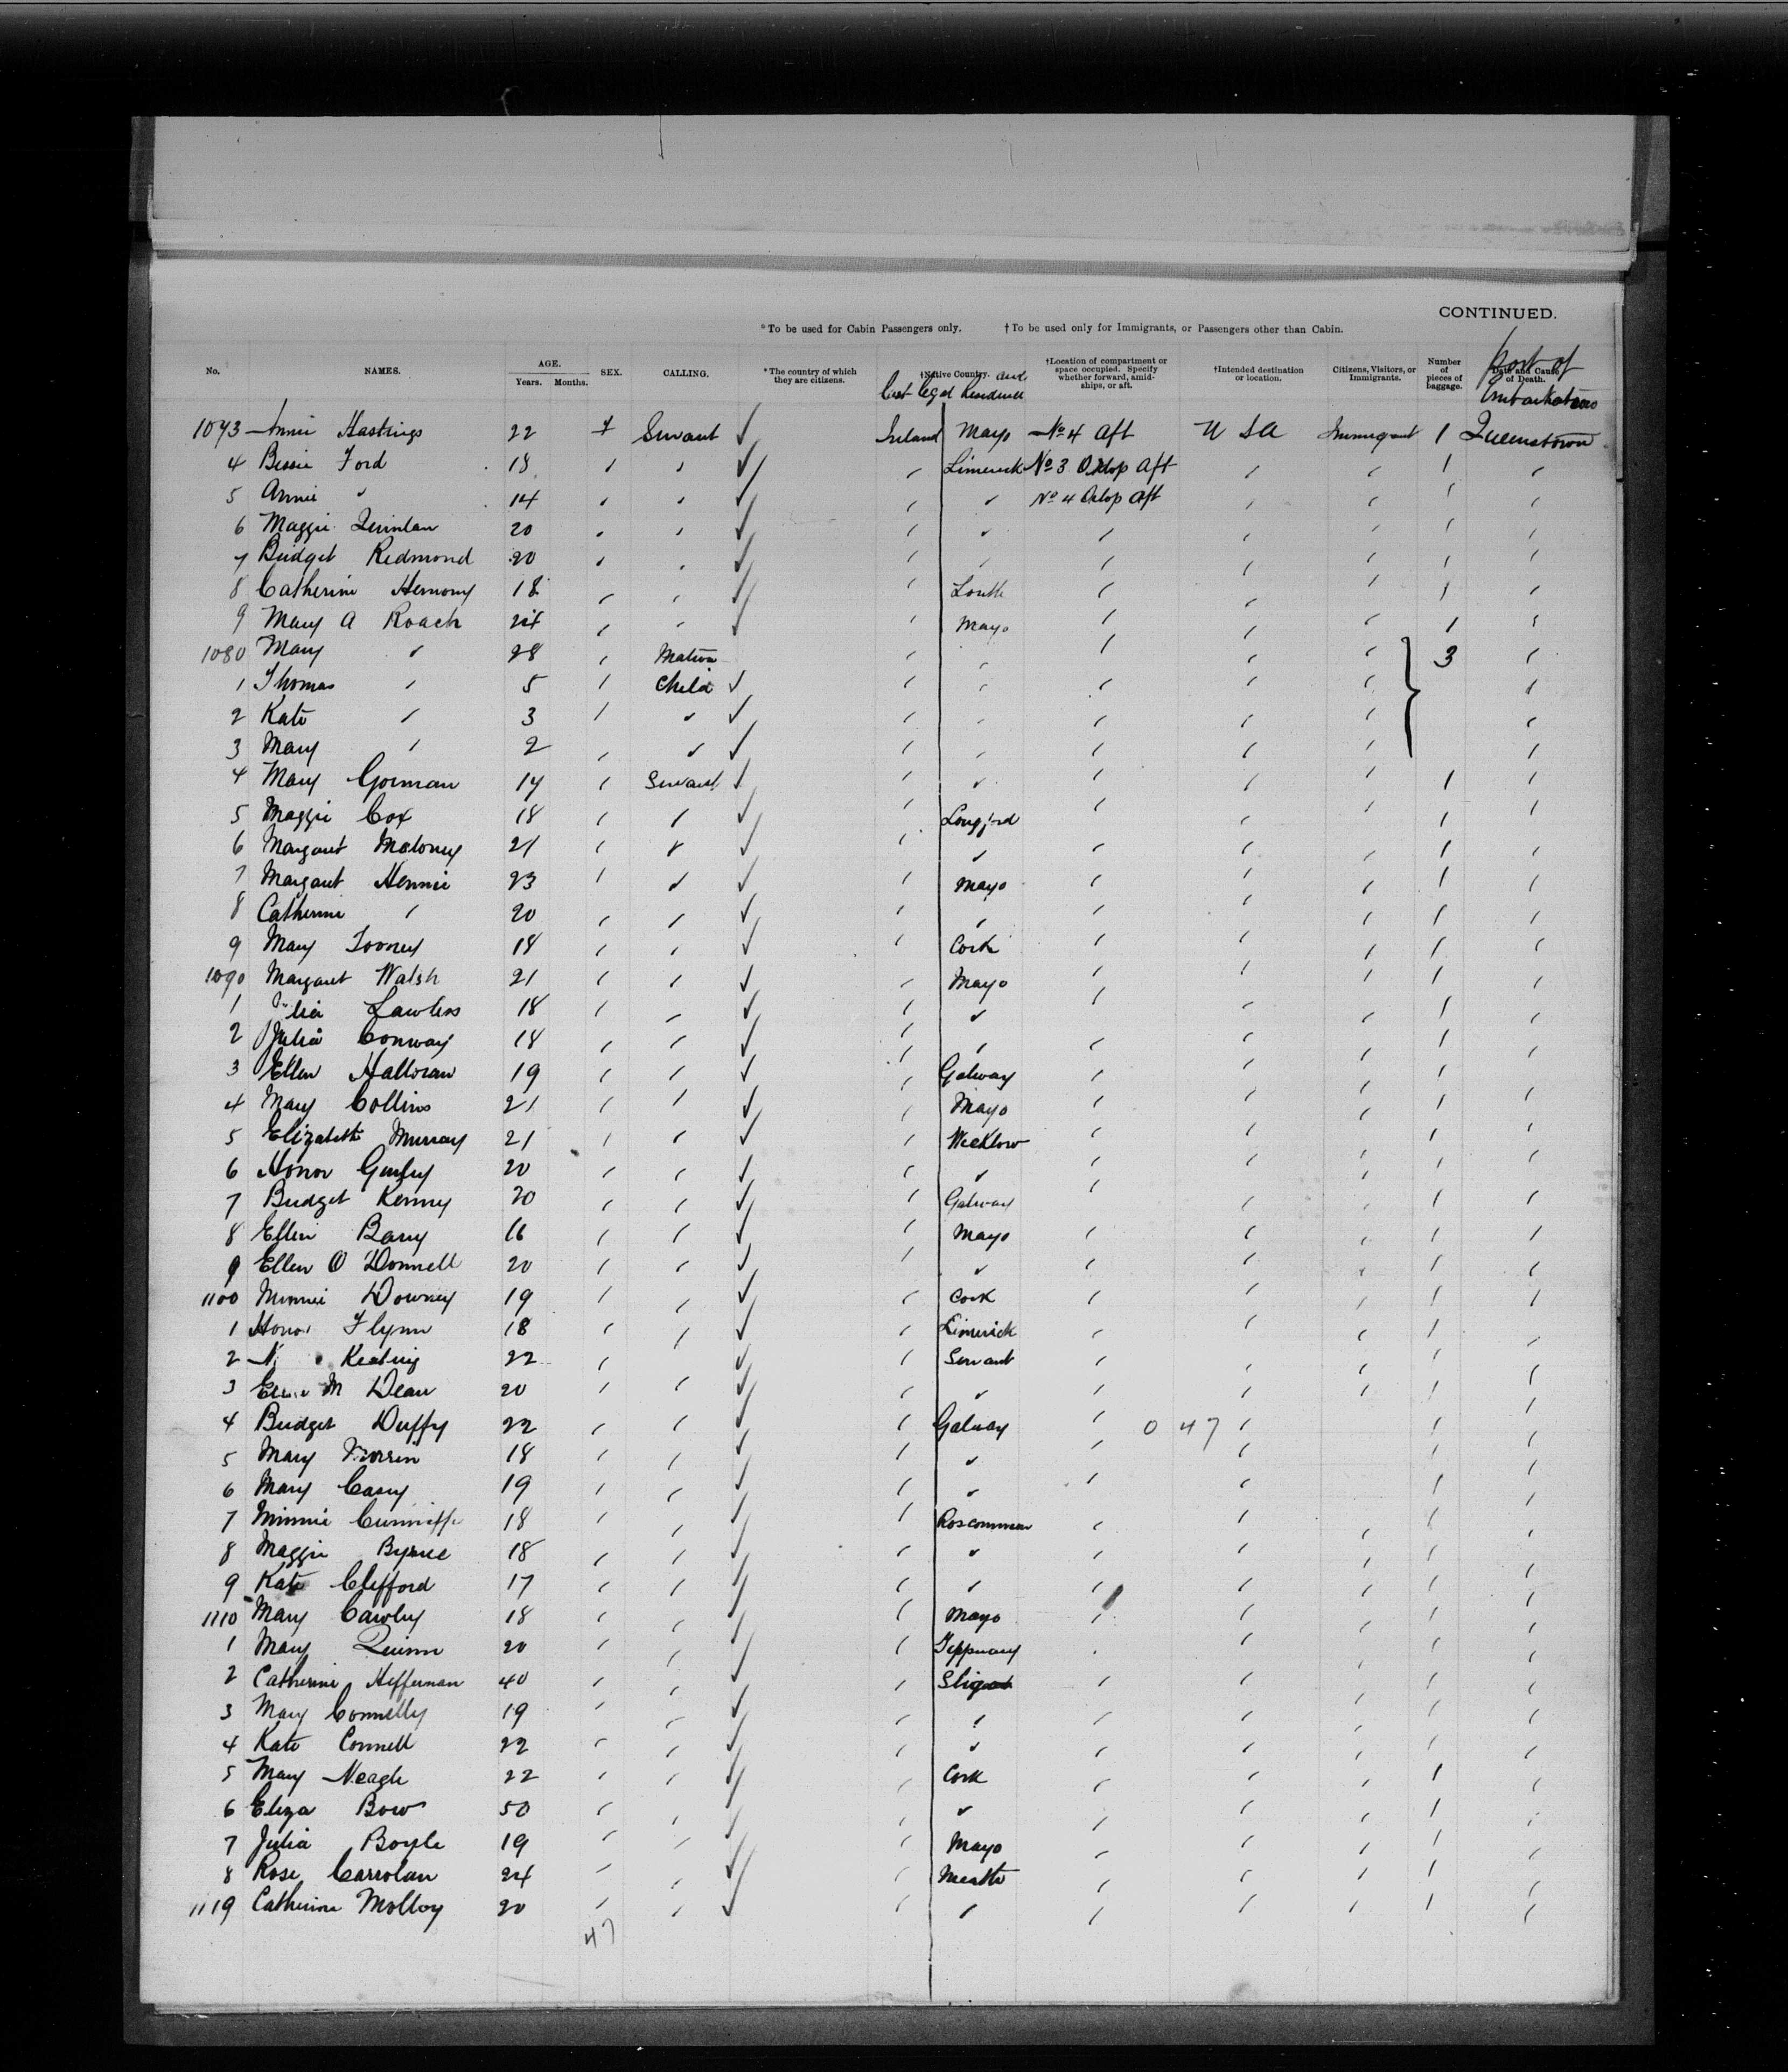 CONTINUED.
*To be used for Cabin Passengers only. †To be used only for Immigrants, or Passengers other than Cabin.
No. NAMES. AGE. Years. Months. SEX. CALLING. *The country of which they are citizens. †Native Country. and last legal Residence †Location of compartment or space occupied. Specify whether forward, amidships, or aft. †Intended destination or location. Citizens, Visitors, or Immigrants. Number of pieces of baggage. Date and Cause of Death. Port of Embarkation
1073 Annie Hastings 22 f Servant ✓ Ireland Mayo No 4 Aft U S A Immigrant 1 Queenstown
4 Bessie Ford 18 " " ✓ " Limerick No 3 Orlop Aft " " 1 "
5 Annie " 14 " " ✓ " " No 4 Orlop Aft " " 1 "
6 Maggie Quinlan 20 " " ✓ " " " " " 1 "
7 Bridget Redmond 20 " " ✓ " " " " " 1 "
8 Catherine 18 " " ✓ " Louth " " " 1 "
9 Mary A Roach 24 " " ✓ " Mayo " " " 1 "
1080 Mary " 28 " Matron " " " " " 3 "
1 Thomas " 5 " Child ✓ " " " " " "
2 Kate " 3 " " ✓ " " " " " "
3 Mary " 2 " " ✓ " " " " " "
4 Mary Gorman 17 " Servant ✓ " " " " " 1 "
5 Maggie Cox 18 " " ✓ " Longford " " " 1 "
6 Margaret Moloney 21 " " ✓ " " " " " 1 "
7 Margaret Hennie 23 " " ✓ " Mayo " " " 1 "
8 Catherine " 20 " " ✓ " " " " " 1 "
9 Mary Toomey 18 " " ✓ " Cork " " " 1 "
1090 Margaret Walsh 21 " " ✓ " Mayo " " " 1 "
1 Lawless 18 " " ✓ " " " " " 1 "
2 Julia Conway 18 " " ✓ " " " " " 1 "
3 Ellen Halloran 19 " " ✓ " Galway " " " 1 "
4 Mary Collins 21 " " ✓ " Mayo " " " 1 "
5 Elizabeth Murray 21 " " ✓ " Wicklow " " " 1 "
6 Honor 20 " " ✓ " " " " " 1 "
7 Bridget Kenny 20 " " ✓ " Galway " " " 1 "
8 Ellen Barry 16 " " ✓ " Mayo " " " 1 "
9 Ellen O Donnell 20 " " ✓ " " " " " 1 "
1100 Minnie Downey 19 " " ✓ " Cork " " " 1 "
1 Honor Flynn 18 " " ✓ " Limerick " " " 1 "
2 Keating 22 " ✓ " Servant " " " 1 "
3 M Dean 20 " " ✓ " " " " " 1 "
4 Bridget Duffy 22 " " ✓ " Galway " 0 47 " 1 "
5 Mary 18 " " ✓ " " " " 1 "
6 Mary Casey 19 " " ✓ " " " " 1 "
7 Minnie Cunniffe 18 " " ✓ " Roscommon " " " 1 "
8 Maggie Byrne 18 " " ✓ " " " " " 1 "
9 Kate Clifford 17 " " ✓ " " " " " 1 "
1110 Mary Cawley 18 " " ✓ " Mayo " " " 1 "
1 Mary Quinn 20 " " ✓ " Tipperary " " " 1 "
2 Catherine Heffernan 40 " " ✓ " Sligo " " " 1 "
3 Mary Connelly 19 " " ✓ " " " " " 1 "
4 Kate Connell 22 " " ✓ " " " " " 1 "
5 Mary Neagle 22 " " ✓ " Cork " " " 1 "
6 Eliza Bow 50 " " ✓ " " " " " 1 "
7 Julia Boyle 19 " " ✓ " Mayo " " " 1 "
8 Rose Carrolan 24 " " ✓ " Meath " " " 1 "
1119 Catherine Molloy 20 " " ✓ " " " " " 1 "
47